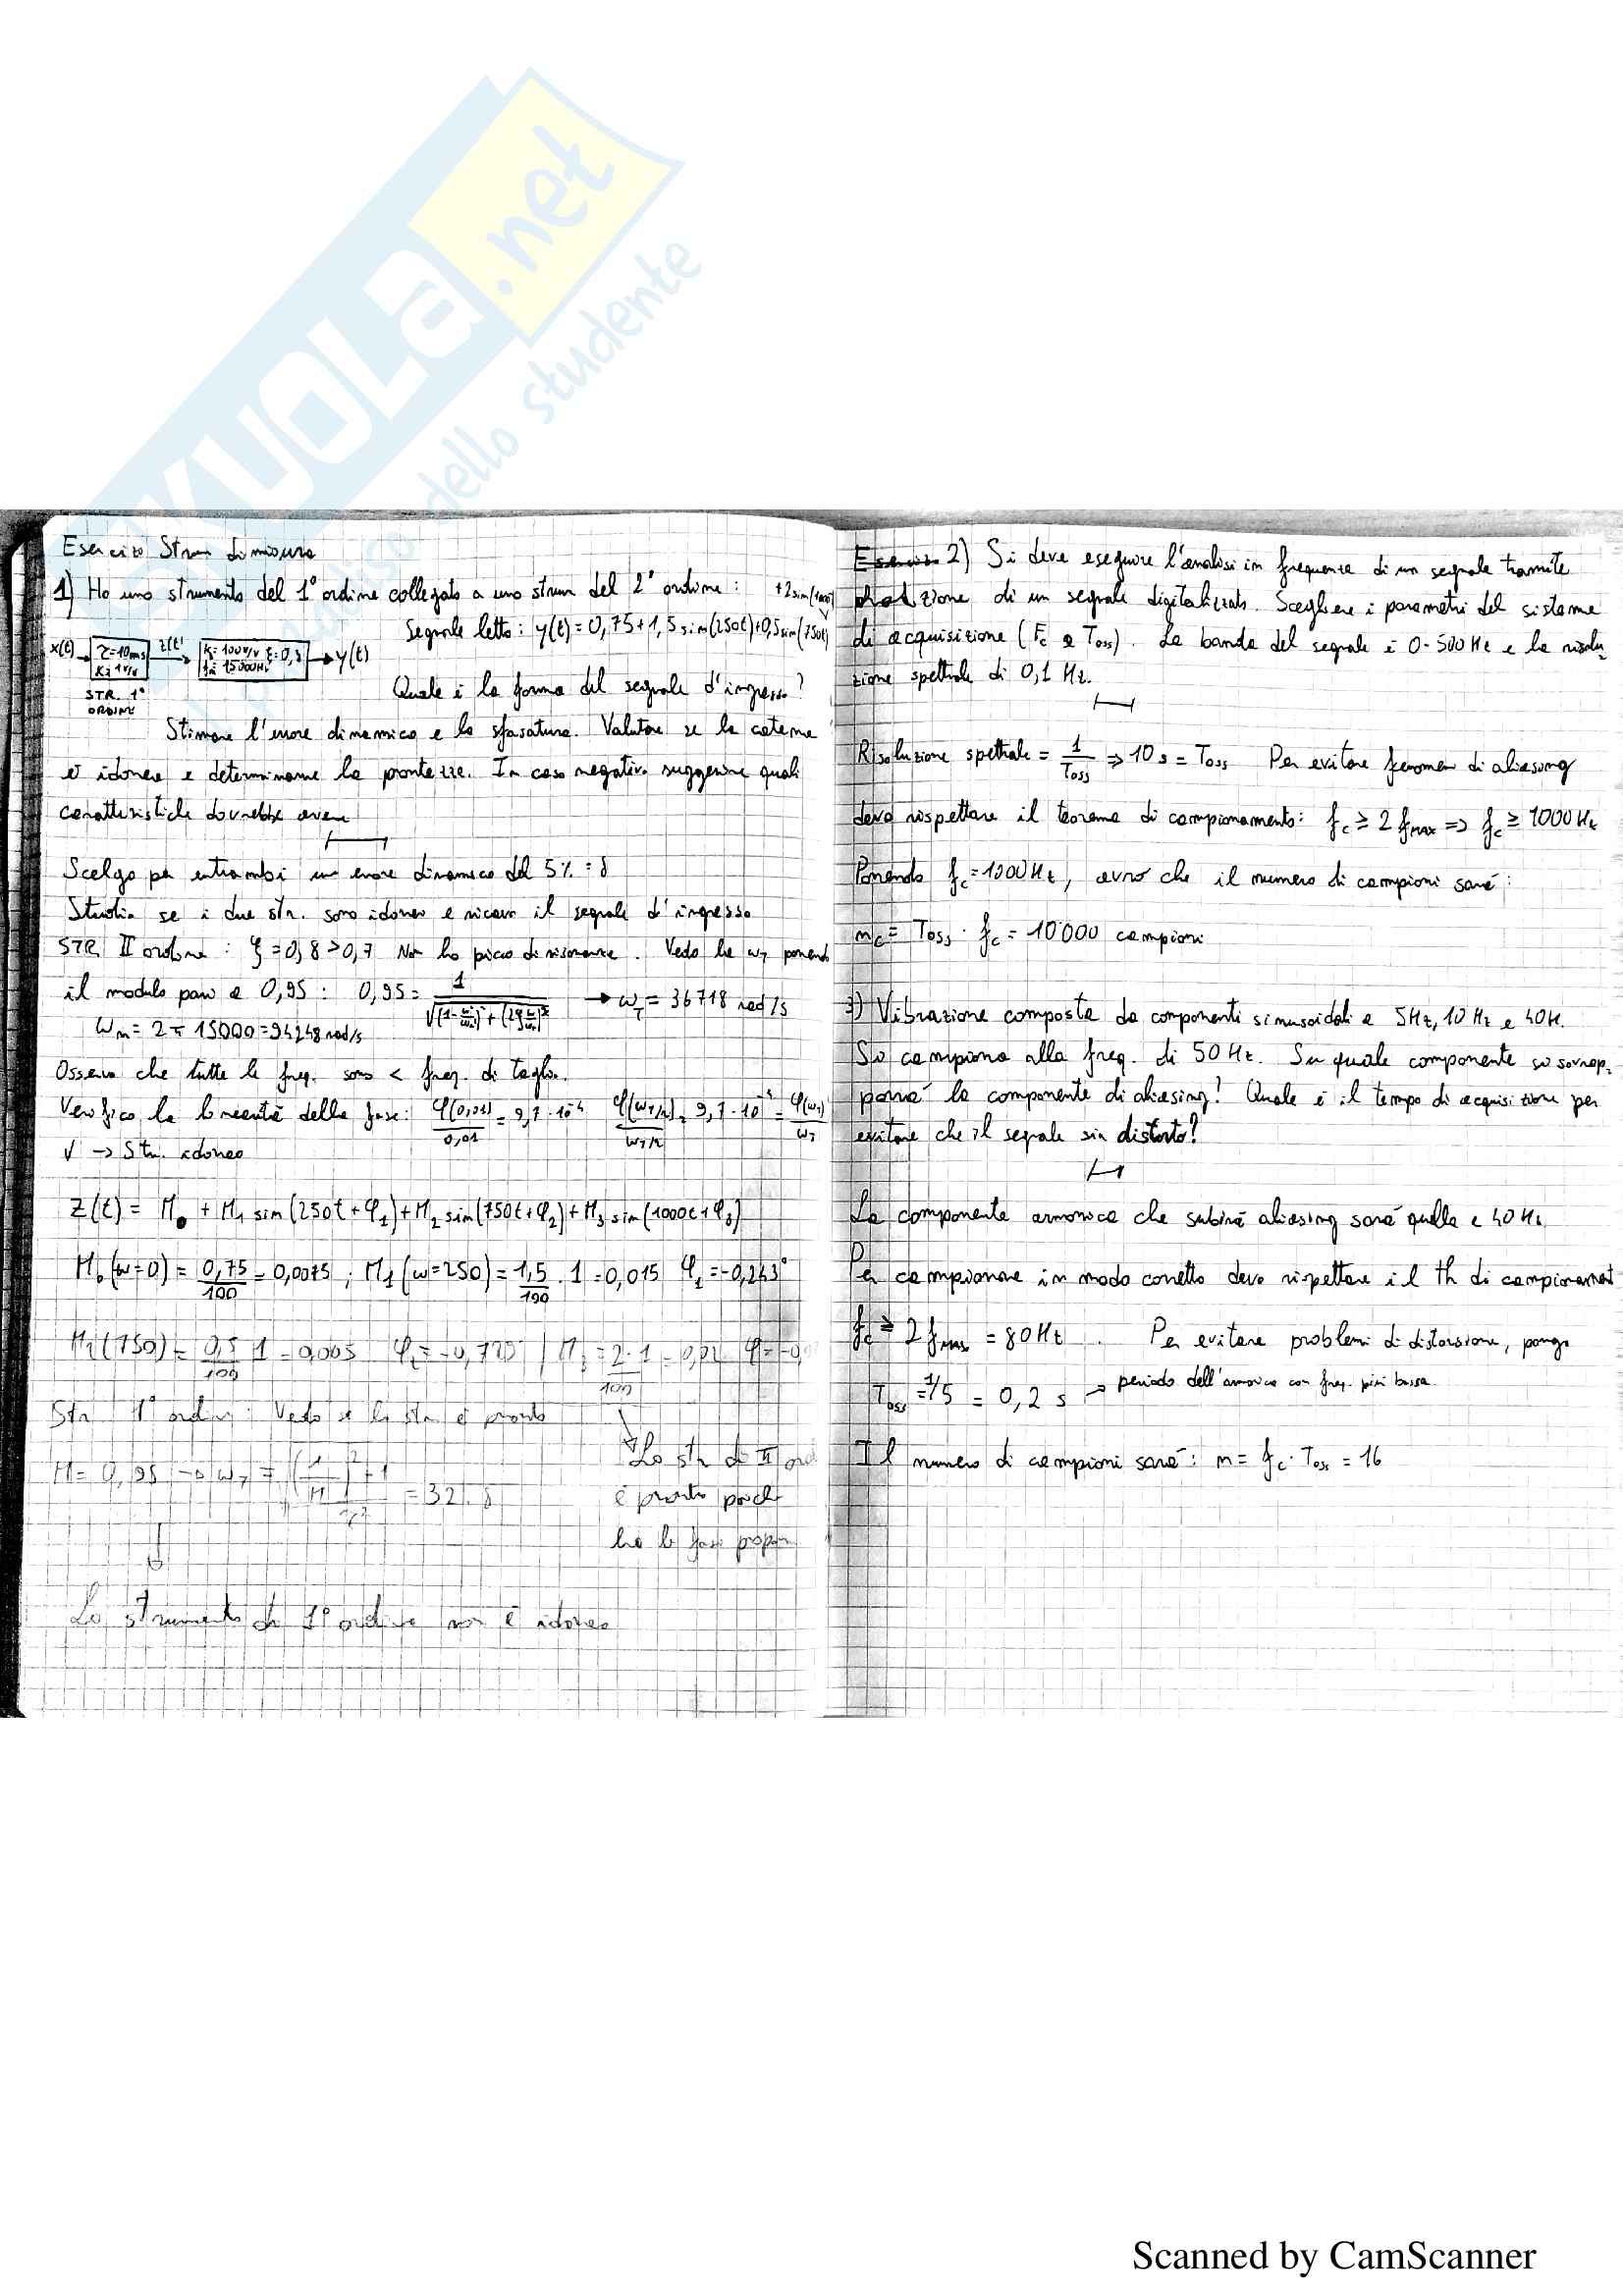 SKUOLA.net
dello studente
Esercizio Strum di misura
1) Ho uno strumento del 1° ordine collegato a uno strum del 2° ordine: +2sin(1000t)
Segnale letto: y(t)=0,75+1,5 sin(250t)+0,5sin(750t)
x(t) → τ=10ms K=1V/V z(t) → K=100V/V ξ=0,8 fn=15000Hz → y(t)
STR. 1° ORDINE
Quale è la forma del segnale d'ingresso?
Stimare l'errore dinamico e lo sfasatura. Valutare se la catena
è idonea e determinarne la prontezza. In caso negativo suggerire quali
caratteristiche dovrebbe avere
Scelgo per entrambi un errore dinamico del 5% = δ
Studio se i due str. sono idonei e ricavo il segnale d'ingresso
STR II ordine: ξ=0,8>0,7 Non ho picco di risonanza. Vedo la ωT ponendo
il modulo pari a 0,95: 0,95 = 1/√((1-ω/ωn)²+(2ξω/ωn)²) → ωT = 36718 rad/s
ωn = 2π 15000 = 94248 rad/s
Osservo che tutte le freq. sono < freq. di taglio.
Verifico la linearità della fase: φ(0,01)/0,01 = 9,7·10⁻⁴ φ(ωT/2)/ωT/2 = 9,7·10⁻⁴ = φ(ωT)/ωT
√ → Str. idoneo
Z(t) = M0 + M1 sin(250t+φ1)+M2 sin(750t+φ2)+M3 sin(1000t+φ3)
M0(ω=0) = 0,75/100 = 0,0075 ; M1(ω=250) = 1,5/100 · 1 = 0,015 φ1 = -0,243°
M2(750) = 0,5/100 · 1 = 0,005 φ2 = -0,729 | M3 = 2/100 · 1 = 0,02
Str 1° ordine: Vedo se lo str è pronto
M = 0,95 → ωT = = 32,8
Lo str di II ord
è pronto poiché
ha le fasi propor
Lo strumento di 1° ordine non è idoneo
2) Si deve eseguire l'analisi in frequenza di un segnale tramite
zione di un segnale digitalizzato. Scegliere i parametri del sistema
di acquisizione (Fc e Toss). La banda del segnale è 0-500 Hz e la risolu-
zione spettrale di 0,1 Hz.
Risoluzione spettrale = 1/Toss ⇒ 10 s = Toss Per evitare fenomeni di aliasing
devo rispettare il teorema di campionamento: fc ≥ 2 fMAX ⇒ fc ≥ 1000 Hz
Ponendo fc=1000Hz, avrò che il numero di campioni sarà:
nc = Toss · fc = 10000 campioni
3) Vibrazione composta da componenti sinusoidali a 5Hz, 10 Hz e 40H.
Si campiona alla freq. di 50 Hz. Su quale componente si sovrap-
porrà la componente di aliasing? Quale è il tempo di acquisizione per
evitare che il segnale sia distorto?
La componente armonica che subirà aliasing sarà quella a 40 Hz.
Per campionare in modo corretto devo rispettare il th di campionament
fc ≥ 2 fmax = 80 Hz . Per evitare problemi di distorsione, pongo
Toss = 1/5 = 0,2 s → periodo dell'armonica con freq. più bassa.
Il numero di campioni sarà: n = fc · Toss = 16
Scanned by CamScanner